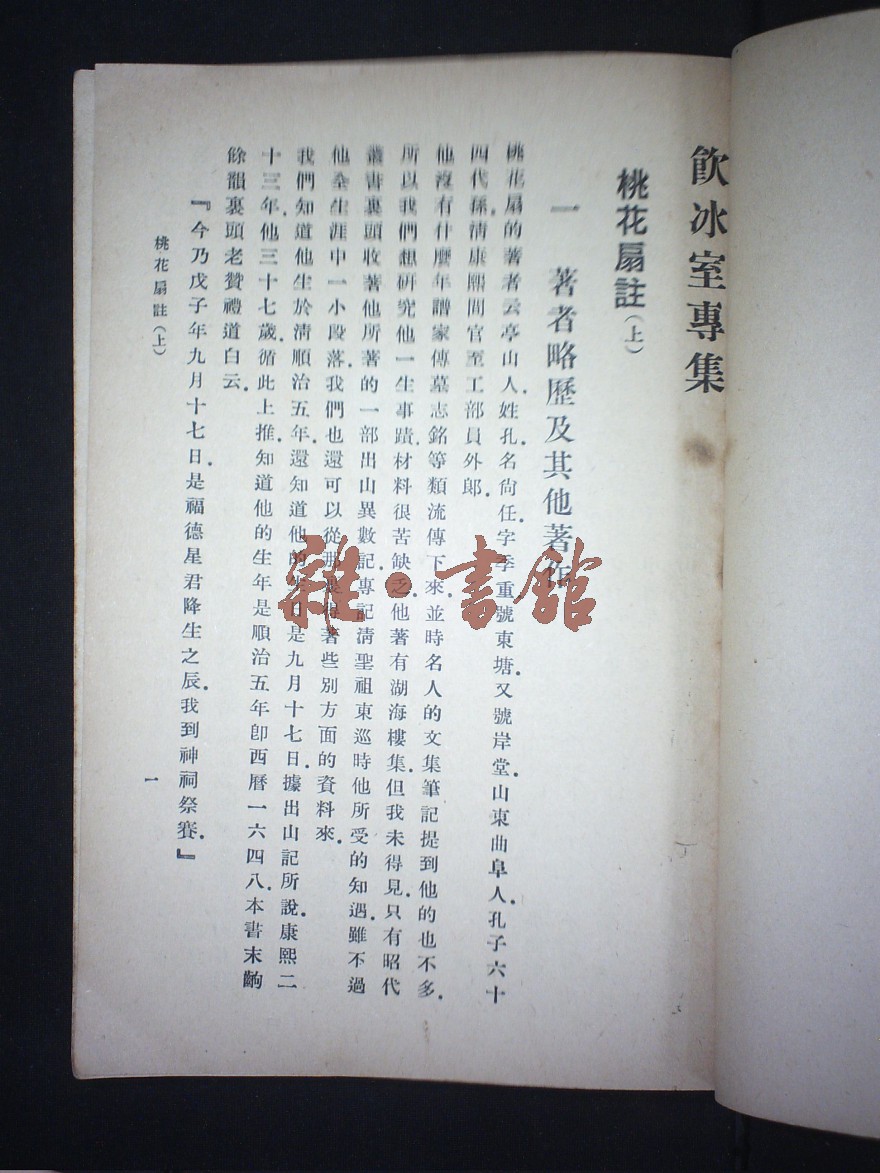 飲冰室專集
桃花扇註(上)
一 著者略歷及其他著作
桃花扇的著者云亭山人.姓孔.名尙任.字季重.號東塘.又號岸堂.山東曲阜人.孔子六十
四代孫.清康熙間官至工部員外郞.
他沒有什麼年譜家傳墓志銘等類流傳下來.並時名人的文集筆記提到他的也不多.
所以我們想硏究他一生事蹟.材料很苦缺乏.他著有湖海樓集.但我未得見.只有昭代
叢書裏頭收著他所著的一部出山異數記.專記淸聖祖東巡時他所受的知遇.雖不過
他全生涯中一小段落.我們也還可以從那裏得著些別方面的資料來.
我們知道他生於淸順治五年.還知道他的生日是九月十七日.據出山記所說.康熙二
十三年.他三十七歲.循此上推.知道他的生年是順治五年卽西曆一六四八.本書末齣
餘韻裏頭老贊禮道白云.
『今乃戊子年九月十七日.是福德星君降生之辰.我到神祠祭賽.』
桃花扇註(上)
一
雜·書館